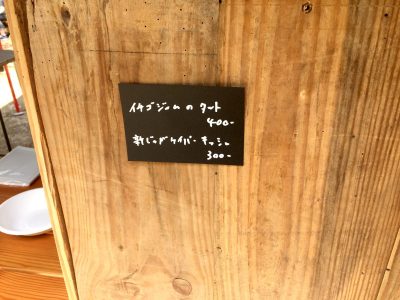 イチゴジャムのタルト
400-
新じゃがケイパーキッシュ
300-